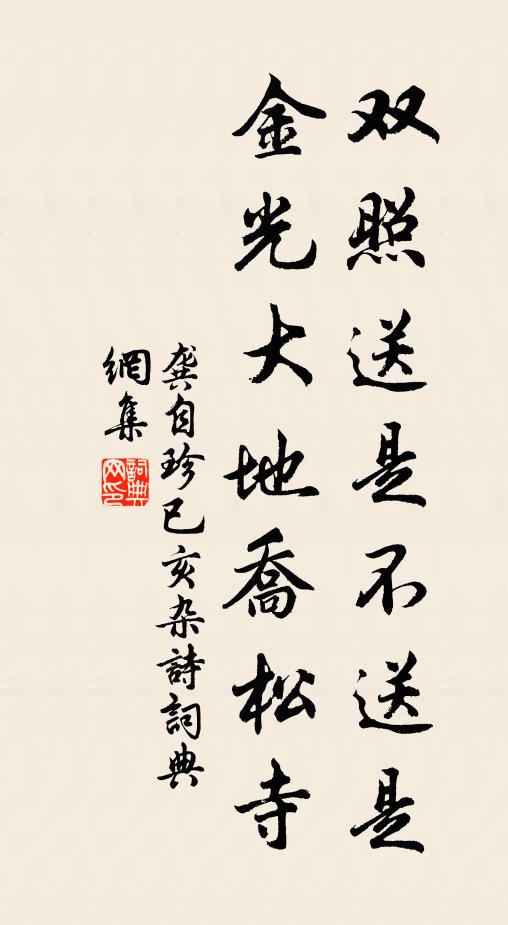 双照送是不送是
金光大地喬松寺
龔自珍已亥杂詩詞典
網集
詞典网印